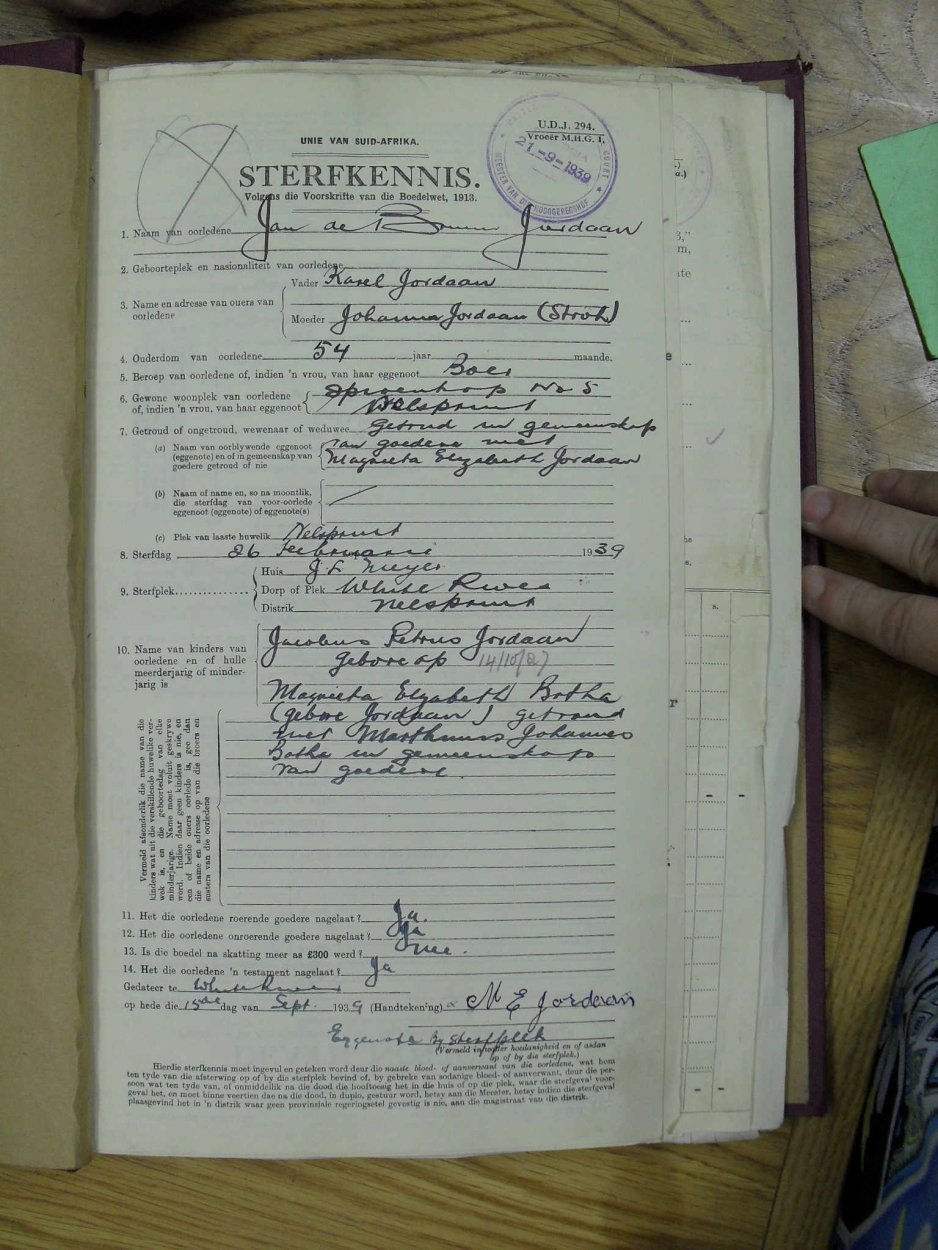 U.D.J. 294.
Vroeër M.H.G. 1.
21-9-1939
MEESTER VAN DIE HOOGGEREGSHOF
COURT
UNIE VAN SUID-AFRIKA.
STERFKENNIS.
Volgens die Voorskrifte van die Boedelwet, 1913.
1. Naam van oorledene Jan de Jordaan
2. Geboorteplek en nasionaliteit van oorledene
3. Name en adresse van ouers van oorledene
Vader Karel Jordaan
Moeder Johanna Jordaan (Stroh)
4. Ouderdom van oorledene 54 jaar maande.
5. Beroep van oorledene of, indien 'n vrou, van haar eggenoot Boer
6. Gewone woonplek van oorledene No 5
of, indien 'n vrou, van haar eggenoot Nelspruit
7. Getroud of ongetroud, wewenaar of weduwee Getroud in gemeenskap
van goedere met
(a) Naam van oorblywende eggenoot
(eggenote) en of in gemeenskap van
goedere getroud of nie
Magrieta Elizabeth Jordaan
(b) Naam of name en, so na moontlik,
die sterfdag van voor-oorlede
eggenoot (eggenote) of eggenote(s)
(c) Plek van laaste huwelik Nelspruit
8. Sterfdag 26 Februarie 1939
9. Sterfplek
Huis J. F. Meyer
Dorp of Plek White River
Distrik Nelspruit
10. Name van kinders van
oorledene en of hulle
meerderjarig of minder-
jarig is
Jacobus Petrus Jordaan
Gebore op 14/10/27
Magrieta Elizabeth Botha
(gebore Jordaan) getroud
met Marthinus Johannes
Botha in gemeenskap
van goedere.
Vermeld afsonderlik die name van die
kinders wat uit die verskillende huwelike ver-
wek is, en die geboortedag van elke
minderjarige. Name moet voluit geskrywe
word. Indien daar geen kinders is nie, en
een of beide ouers oorlede is, gee dan
die name en adresse op van die broers en
susters van die oorledene
11. Het die oorledene roerende goedere nagelaat? Ja.
12. Het die oorledene onroerende goedere nagelaat? Ja
13. Is die boedel na skatting meer as £300 werd? Nee.
14. Het die oorledene 'n testament nagelaat? Ja
Gedateer te White River
op hede die 15de dag van Sept. 1939 (Handtekening) M E Jordaan
Eggenote By sterfplek
(Vermeld in watter hoedanigheid en of asdan
op of by die sterfplek.)
Hierdie sterfkennis moet ingevul en geteken word deur die naaste bloed- of aanverwant van die oorledene, wat hom
ten tyde van die afsterwing op of by die sterfplek bevind of, by gebreke van sodanige bloed- of aanverwant, deur die per-
soon wat ten tyde van, of onmiddelik na die dood die hooftoesig het in die huis of op die plek, waar die sterfgeval voor-
geval het, en moet binne veertien dae na die dood, in duplo, gestuur word, hetsy aan die Meester, hetsy indien die sterfgeval
plaasgevind het in 'n distrik waar geen provinsiale regeringsetel gevestig is nie, aan die magistraat van die distrik.